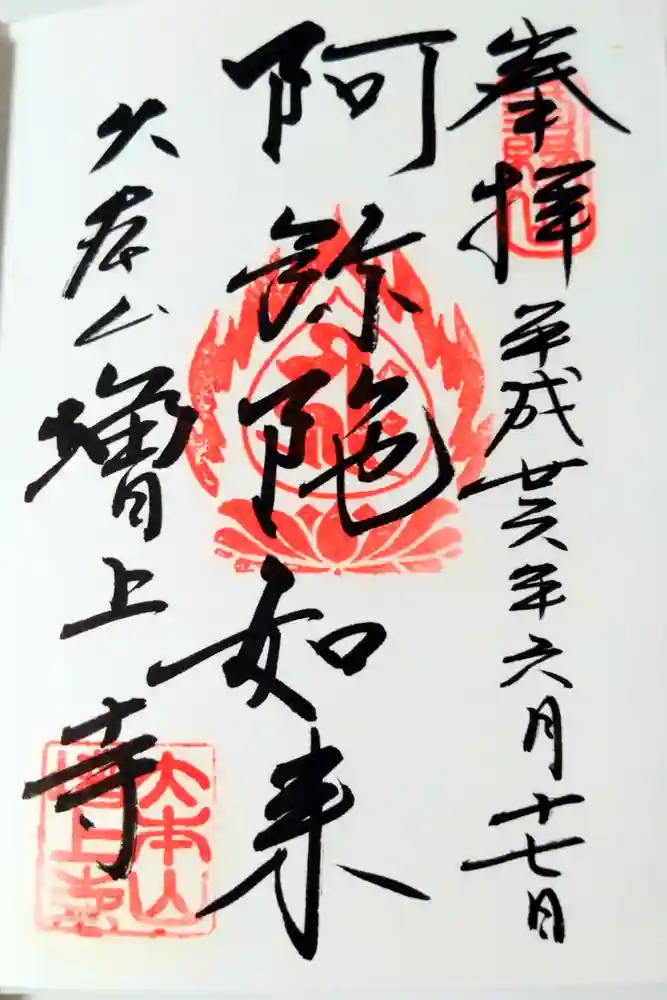 奉拝
平成廿六年六月十七日
阿弥陀如来
大本山増上寺
大本山
増上寺